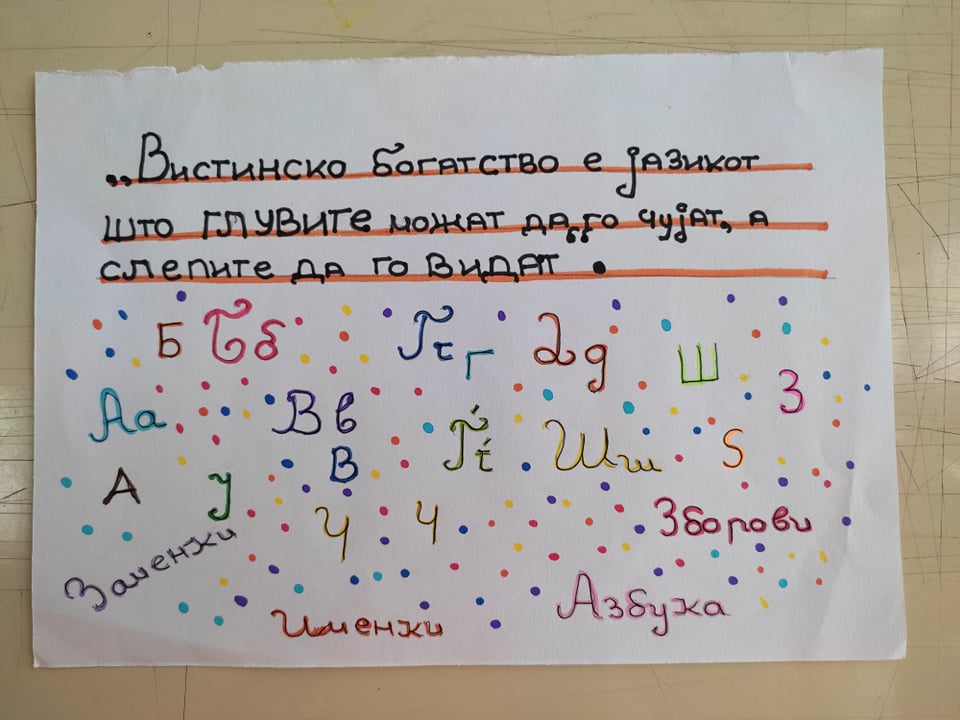 „Вистинско богатство е јазикот
што глувите можат да го чујат, а
слепите да го видат“.
Б Бб Гг г Дд Ш З
Аа Вв В Ѓѓ Шш Ѕ
А У Ч Ч Зборови
Заменки
Именки Азбука